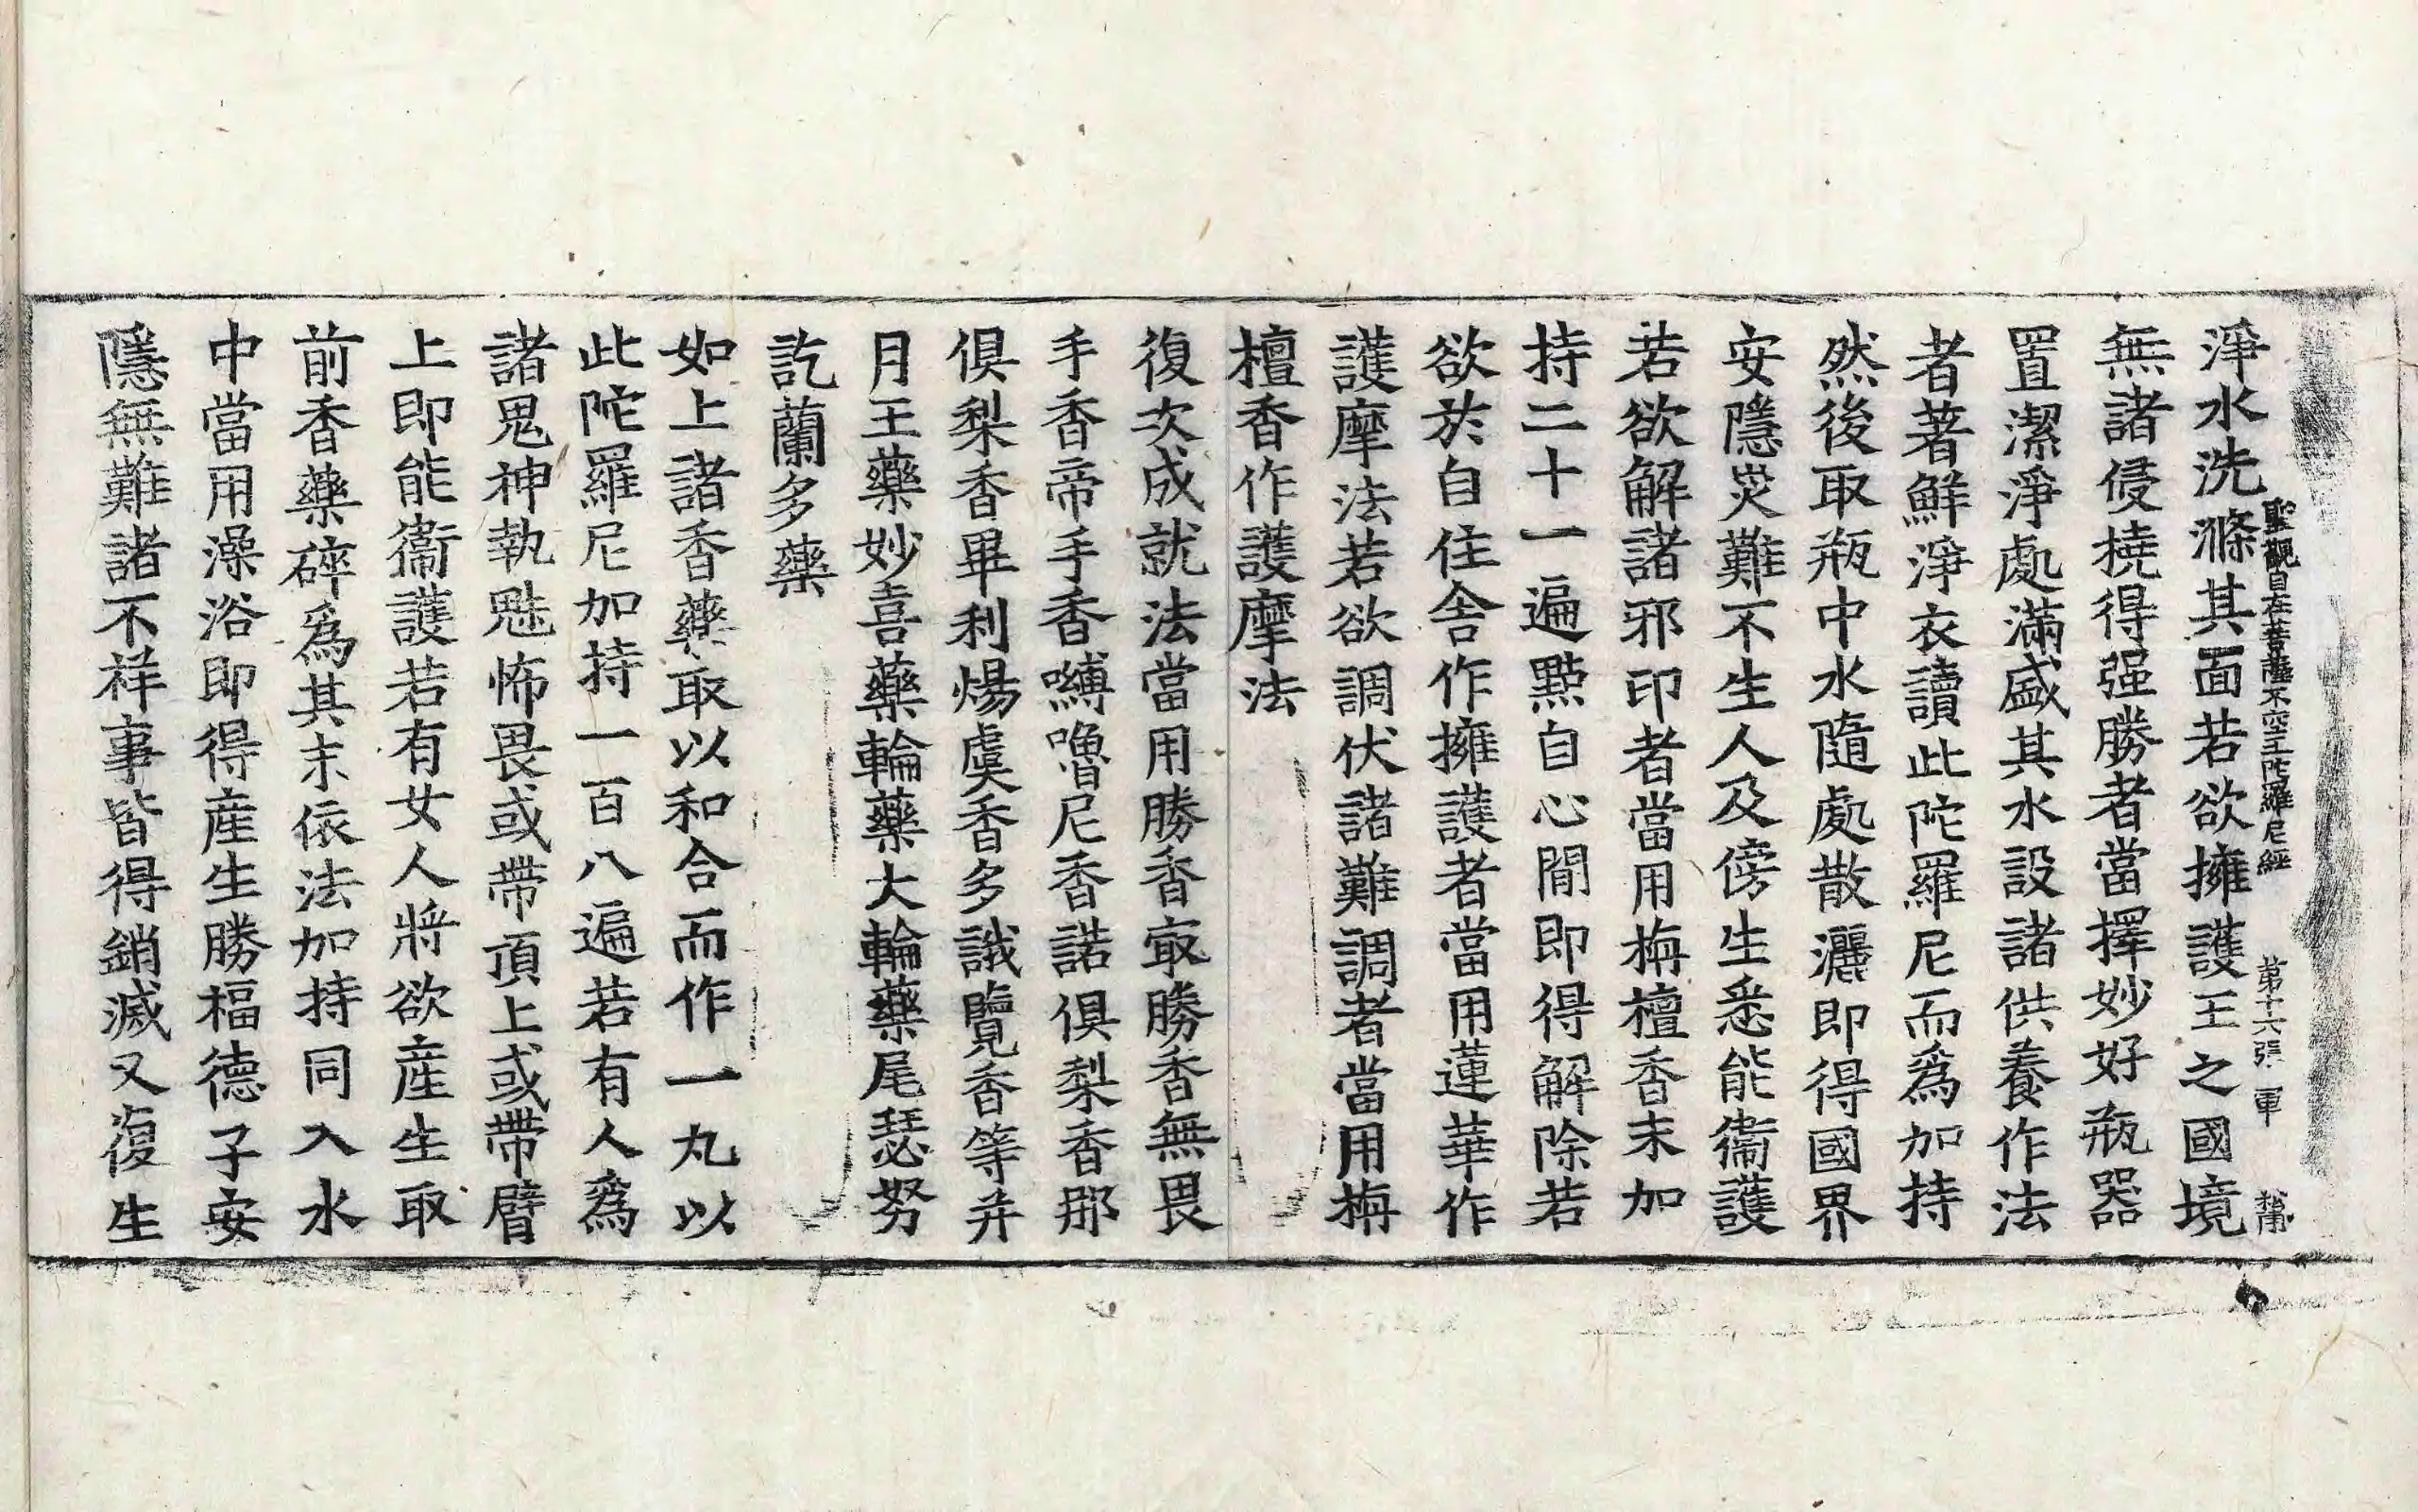 淨水洗滌其面若欲擁護王之國境
聖觀自在菩薩不空王陁羅尼經 第十六張 軍
無諸侵撓得强勝者當擇妙好瓶器
置潔淨處滿盛其水設諸供養作法
者著鮮淨衣讀此陀羅尼而爲加持
然後取瓶中水隨處散灑即得國界
安隱災難不生人及傍生悉能衞護
若欲解諸邪印者當用栴檀香末加
持二十一遍點自心間即得解除若
欲於自住舍作擁護者當用蓮華作
護摩法若欲調伏諸難調者當用栴
檀香作護摩法
復次成就法當用勝香㝡勝香無畏
手香帝手香嚩嚕尼香諾俱梨香那
俱梨香畢利煬虞香多誐覽香等并
月王藥妙喜藥輪藥大輪藥尾瑟努
訖蘭多藥
如上諸香藥取以和合而作一丸以
此陀羅尼加持一百八遍若有人爲
諸鬼神執魅怖畏或帶頂上或帶臂
上即能衞護若有女人將欲產生取
前香藥碎爲其末依法加持同入水
中當用澡浴即得產生勝福德子安
隱無難諸不祥事皆得銷滅又復生